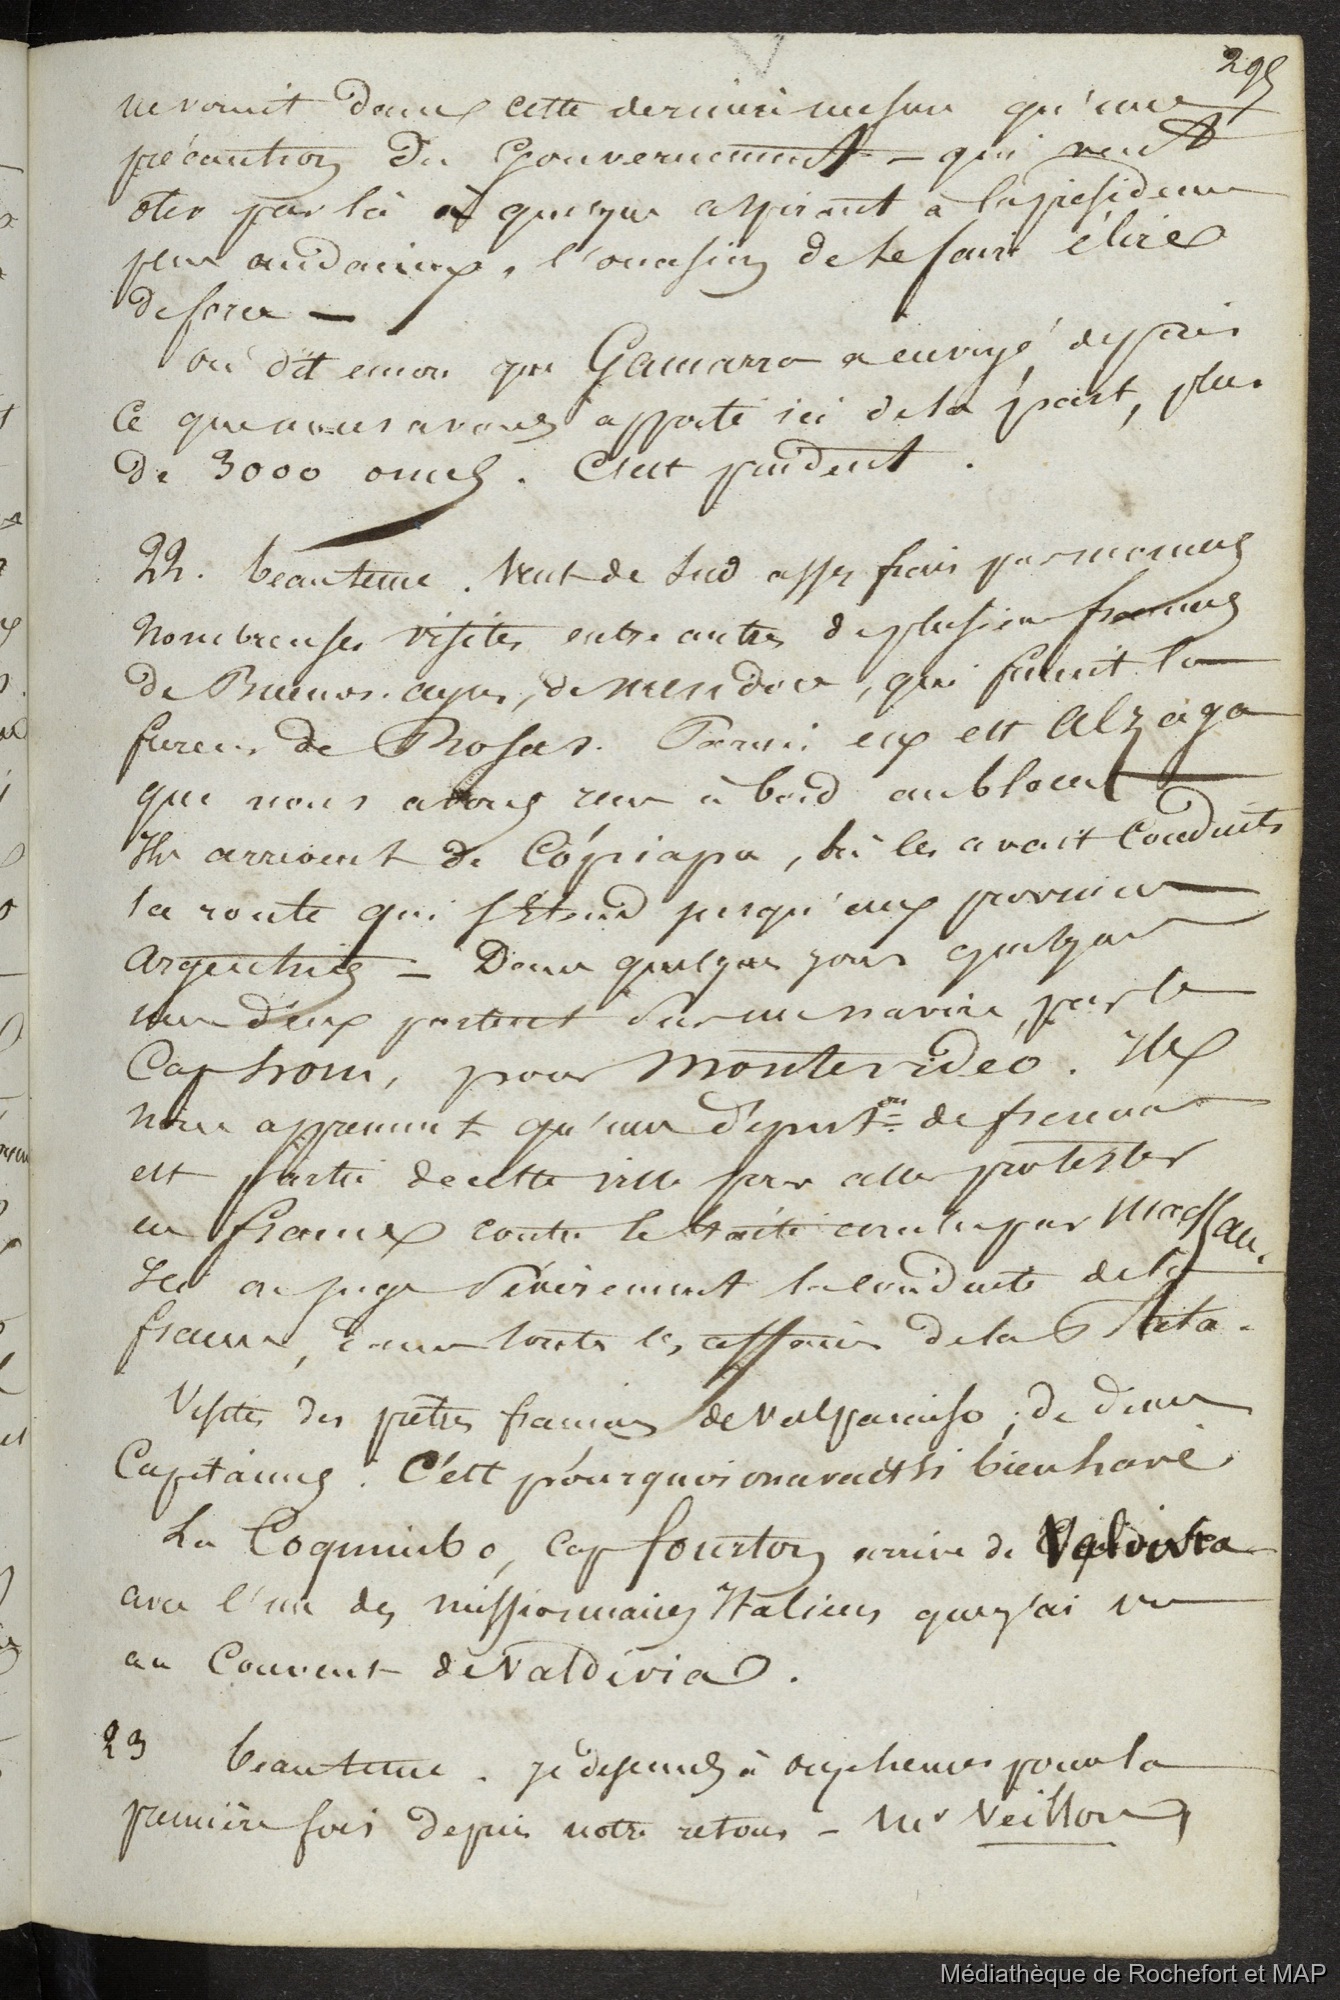 295
ne voient dans cette dernière mesure qu'une
précaution du Gouvernement — qui veut
oter par là à quelque aspirant à la présidence
peu audacieux, l'occasion de se faire élire
de force —
on dit encore que Gamarra a envoyé, depuis
ce que nous avons apporté ici de sa part, plus
de 3000 onces. C'est prudent.
22. beau tems. Vent de Sud assez frais par momens
Nombreuses visites entre autres de plusieurs français
de Buenos-ayres, de Mendoza, qui fuient la
fureur de Rosas. Parmi eux est Alzaga
que nous avons reçu à bord au blocus
Ils arrivent de Copiapo, où les avait conduits
la route qui s'étend jusqu'aux provinces
argentines — Dans quelques jours quelques
uns d'eux partent sur un navire, par le
Cap horn, pour Montevideo. Ils
nous apprennent qu'une déput.on de français
est partie de cette ville pour aller protester
en france contre le traité conclu par Mackau.
Ici on juge sévèrement la conduite de la
france, dans toutes les affaires de la Plata.
Visites des prêtres français de Valparaiso, de deux
Capitaines. C'est pourquoi on avait si bien
La Coquimbo, Cap arrive de Valdivia
avec l'un des missionnaires Italiens que j'ai vu
au Couvent de Valdivia.
23 beau tems. je descends à onze heures pour la
première fois depuis notre retour — Mr Veillon,
Médiathèque de Rochefort et MAP